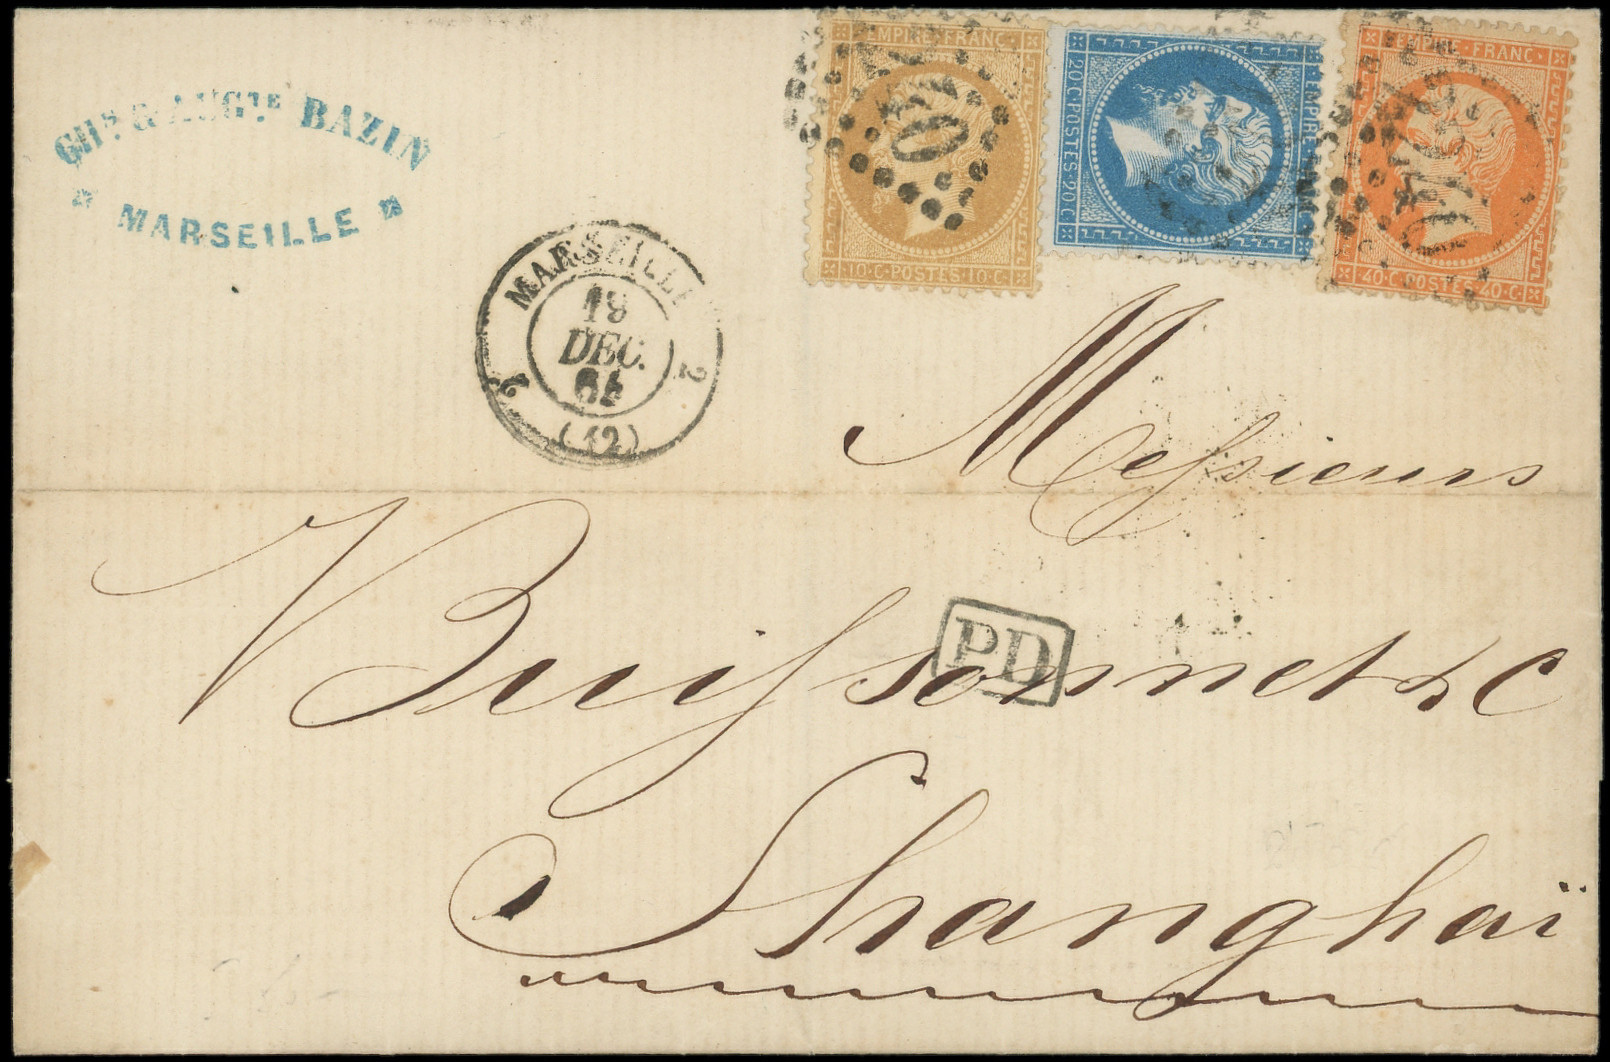 CHS. & AUGTE BAZIN
MARSEILLE
EMPIRE FRANC
10·C·POSTES·10·C
20·C·POSTES·20·C
EMPIRE
EMPIRE·FRANC
40·C·POSTES·40·C
MARSEILLE
2
19
DEC.
64
(12)
Messieurs
Buissonnet & C
PD
Shanghaï